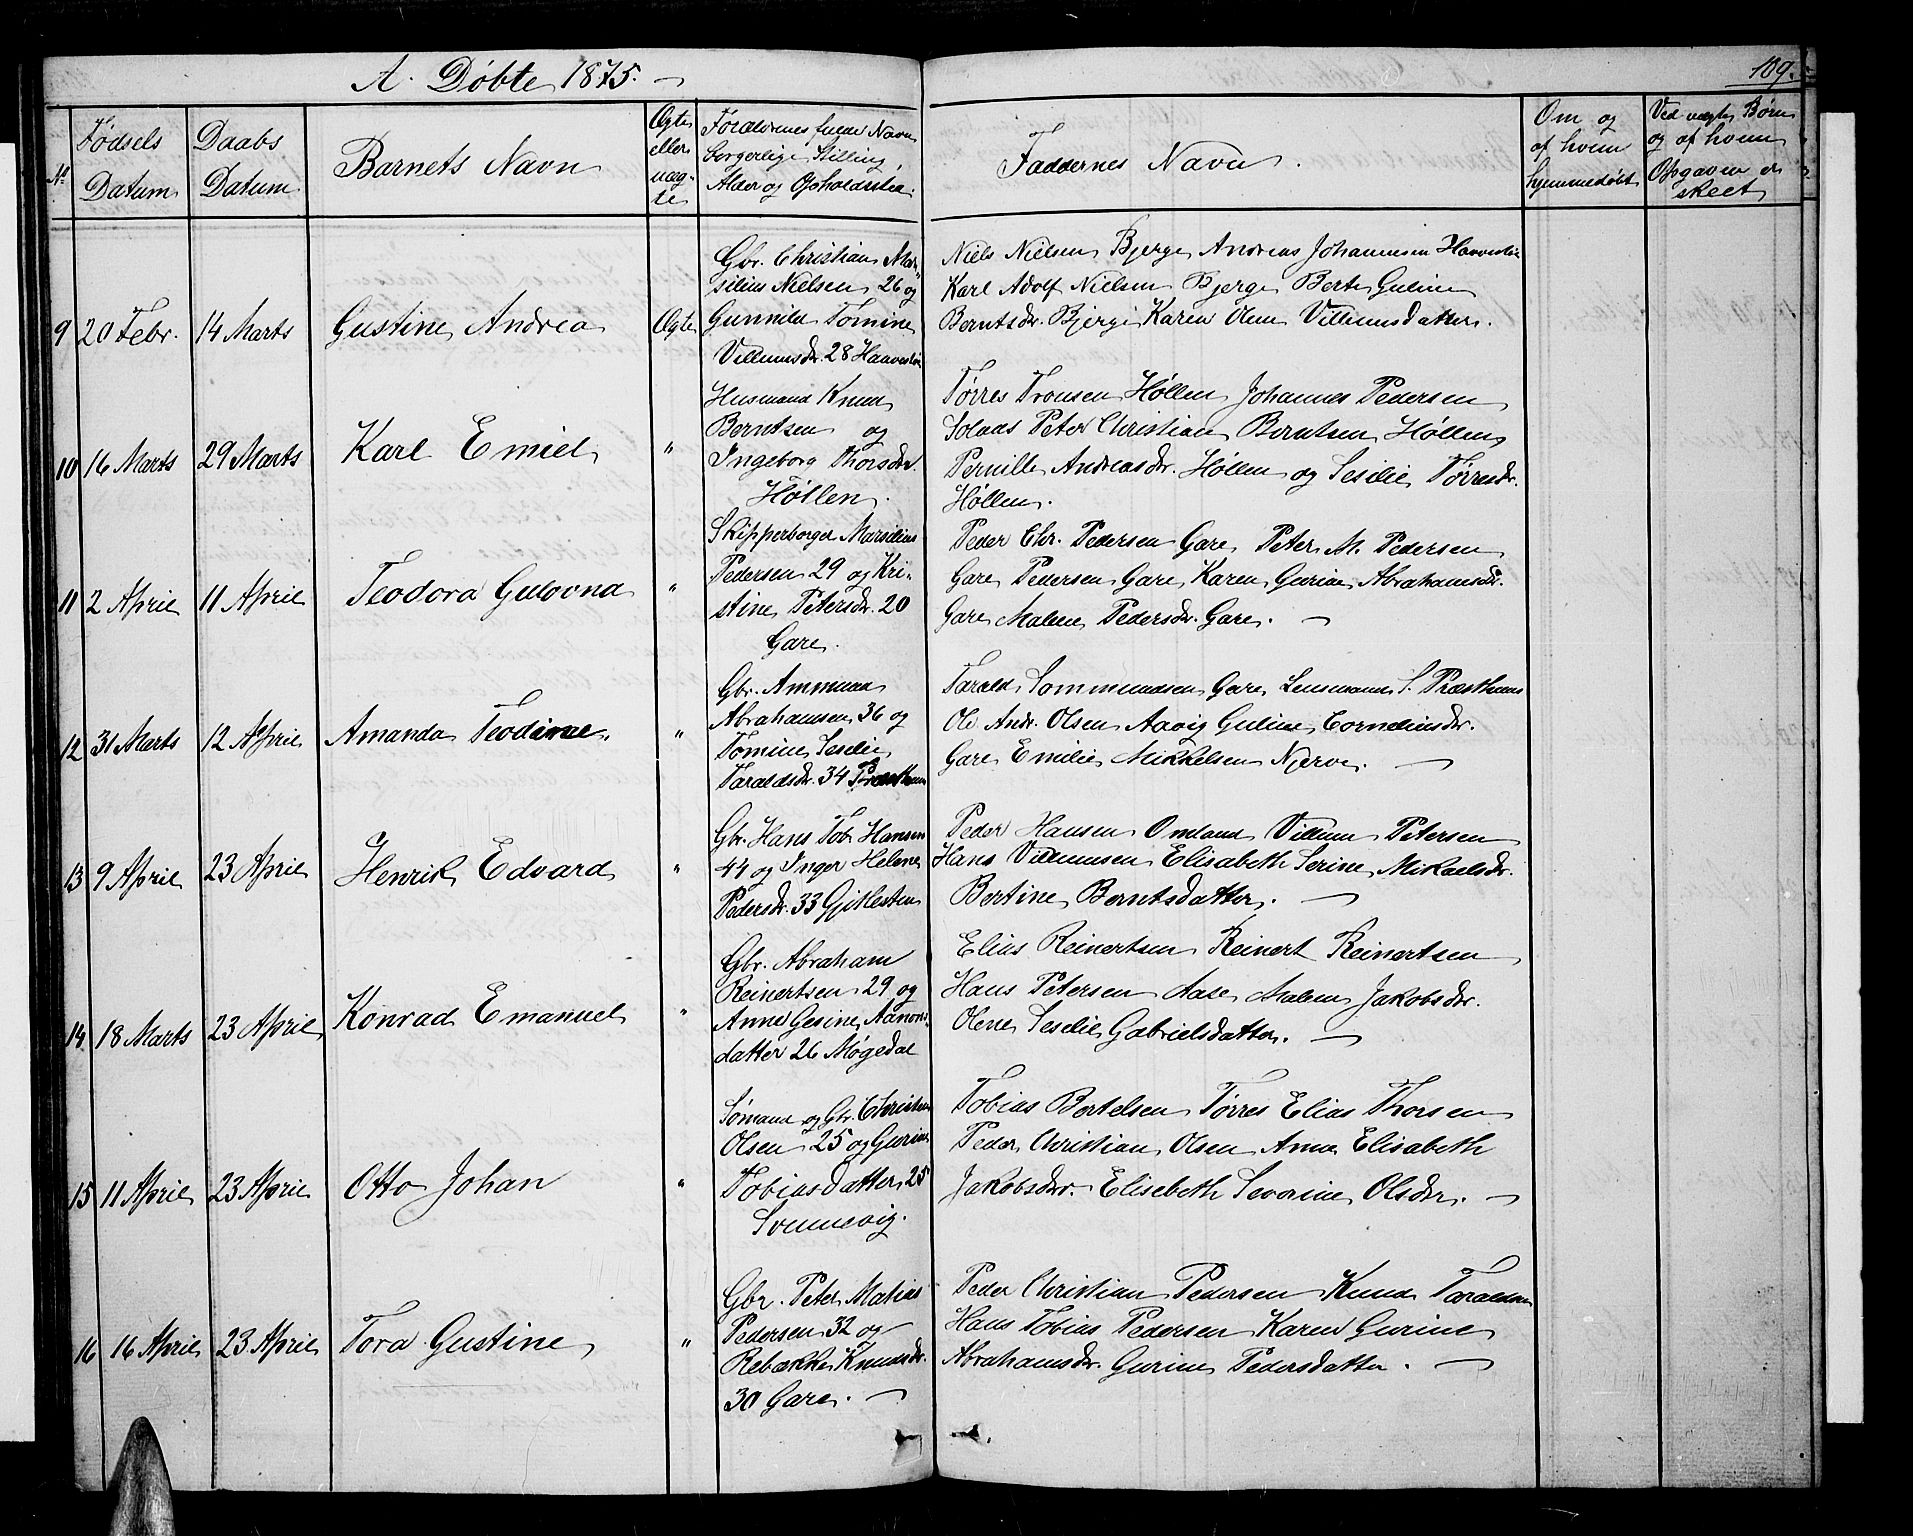 A. Døbte 1875.
109.
No
Fødsels
Datum
Daabs
Datum
Barnets Navn
Ægte
eller
uæg-
te
Forældrenes fulde Navn
borgerlige Stilling,
Alder og Opholdssted.
Faddernes Navn.
Om og
af hvem
hjemmedøbt
Ved uægte Børn
og af hvem
Opgaven er
skeet
9 20 Febr. 14 Marts Gustine Andrea Ægte
Gbr. Christian Mar-
silius Nielsen 26 og
Gunnild Tomine
Villumsdr. 28
Niels Nielsen Bjerge Andreas Johannesen
Karl Adolf Nielsen Bjerge Berte Guline
Berntsdr. Bjerge Karen Olene Villumsdatter.
10 16 Marts 29 Marts Karl Emiel "
Husmand Knud
Berntsen og
Ingeborg Thorsdr.
Høllen.
Tørres Tronsen Høllen Johannes Pedersen
Solaas Peter Christian Berntsen Høllen
Pernille Andreasdr. Høllen og Sesilie Tørresdr.
Høllen.
11 2 April 11 April Teodora Gulovna "
Skipperborger Marselius
Pedersen 29 og Kri-
stine Petersdr. 20
Gare.
Peder Chr. Pedersen Gare Peter M. Pedersen
Gare Pedersen Gare Karen Gurine Abrahamsdr.
Gare Malene Pedersdr. Gare.
12 31 Marts 12 April Amanda Teodine "
Gbr. Ammund
Abrahamsen 36 og
Tomine Sesilie
Taraldsdr. 34
Tarald Sommundsen Gare Lensmann S. Præsthuus
Ole Andr. Olsen Aavig Guline Corneliusdr.
Gare Emilie Mikkelsen Njerve.
13 9 April 23 April Henrik Edvard "
Gbr. Hans Tob. Hansen
44 og Inger Helene
Pedersdr. 33 Gjitlesten
Peder Hansen Omland Villum Petersen
Hans Villumsen Elisabeth Serine Mikaelsdr.
Bertine Berntsdatter.
14 18 Marts 23 April Konrad Emanuel "
Gbr. Abraham
Reinertsen 29 og
Anne Gesine Aanons-
datter 26 Møgedal
Elias Reinertsen Reinert Reinertsen
Hans Petersen Aase Malene Jakobsdr.
Olene Sesilie Gabrielsdatter.
15 11 April 23 April Otto Johan "
Sømand og Gbr. Christen
Olsen 25 og Gurine
Tobiasdatter 25
Svennevig.
Tobias Bertelsen Tørres Elias Thorsen
Peder Christian Olsen Anne Elisabeth
Jakobsdr. Elisebeth Severine Olsdr.
16 16 April 23 April Tora Gustine "
Gbr. Peter Matias
Pedersen 32 og
Rebække Knudsdr.
30 Gare.
Peder Christian Pedersen Knud Taraldsen
Hans Tobias Pedersen Karen Gurine
Abrahamsdr. Gurine Pedersdatter.